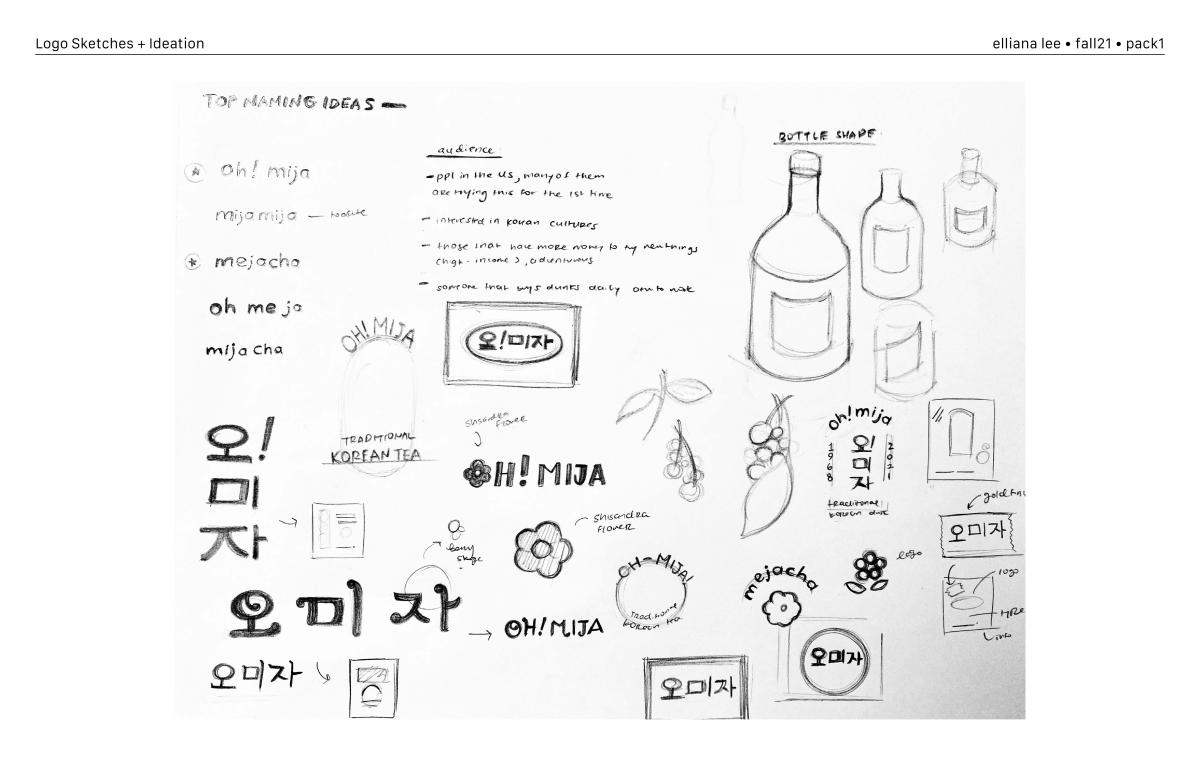 Logo Sketches + Ideation
elliana lee • fall21 • pack1
TOP NAMING IDEAS —
oh! mija
mijamija —
mejacha
oh me ja
mija cha
audience
- ppl in the US, many of them
are trying this for the 1st time
- interested in korean cultures
- those that have more money to try new things
(high-income), adventurous
- someone that buys drinks daily
BOTTLE SHAPE
OH! MIJA
TRADITIONAL
KOREAN TEA
오!미자
오!
미
자
shisandra
flower
H! MIJA
shisandra
flower
berry
stage
오 미 자
OH! MIJA
오미자
OH-MIJA!
traditional
korean tea
mejacha
logo
oh! mija
1968
오!
미
자
2021
traditional
korean
gold
오미자
logo
info
오미자
오미자